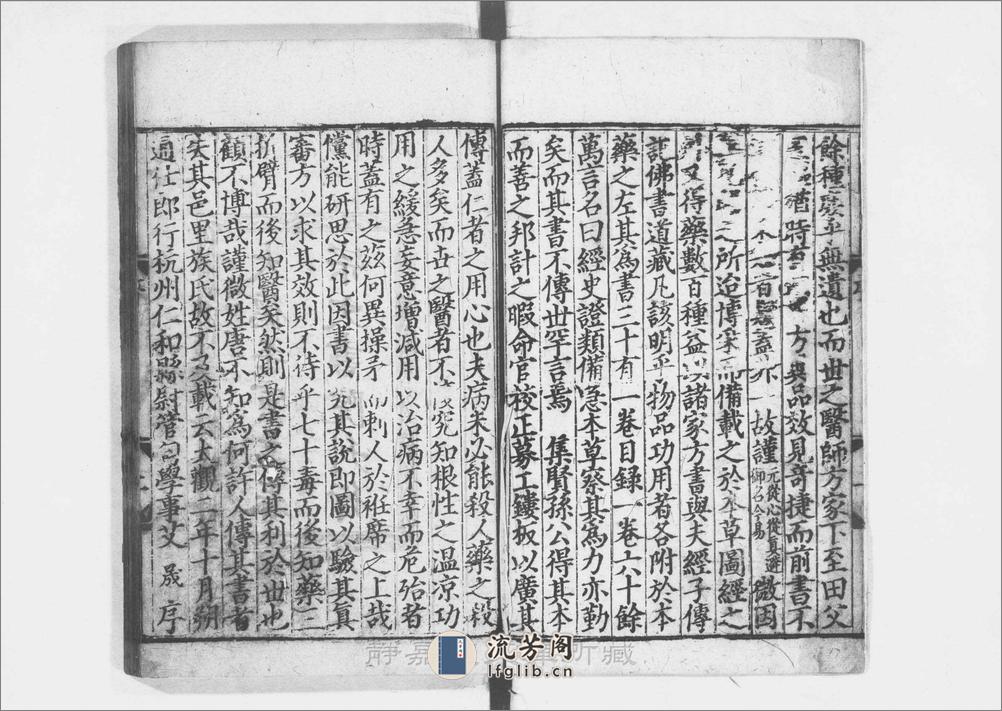 餘種 無遺也而世之醫師方家下至田父
時 方與品效見奇捷而前書不
百 故謹元從心從真避御名今易微因
之所治博采而備載之於本草圖經之
又得藥數百種益以諸家方書與夫經子傳
記佛書道藏凡該明乎物品功用者各附於本
藥之左其為書三十有一卷目録一卷六十餘
萬言名曰經史證類備急本草察其為力亦勤
矣而其書不傳世罕言焉 集賢孫公得其本
而善之邦計之暇命官校正募工鏤板以廣其
傳蓋仁者之用心也夫病未必能殺人藥之殺
人多矣而世之醫者不 究知根性之溫涼功
用之緩急妄意增減用以治病不幸而危殆者
時蓋有之茲何異操矛 刺人於袵席之上哉
儻能研思於此因書以 究其説即圖以驗其真
審方以求其效則不待乎七十毒而後知藥三
折臂而後知醫矣然則是書之傳其利於世也
顧不博哉謹微姓唐不知為何許人傳其書者
失其邑里族氏故不及載云大觀二年十月朔
通仕郎行杭州仁和縣尉管句學事艾 晟 序
靜嘉 所藏
流芳阁
lfglib.cn